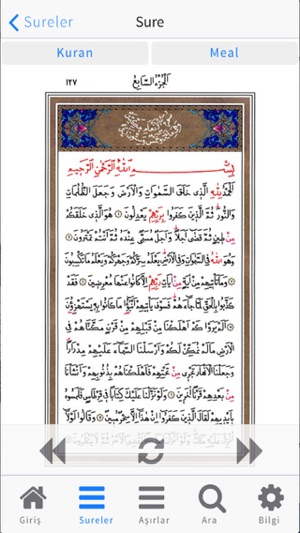 Sureler
Sure
Kuran
Meal
١٢٧ اَلْجُزْءُ السَّابِعُ
بِسْمِ اللّٰهِ الرَّحْمٰنِ الرَّحِيمِ
اَلْحَمْدُ لِلّٰهِ الَّذِى خَلَقَ السَّمٰوَاتِ وَالْاَرْضَ وَجَعَلَ الظُّلُمَاتِ
وَالنُّورَ ثُمَّ الَّذِينَ كَفَرُوا بِرَبِّهِمْ يَعْدِلُونَ هُوَ الَّذِى خَلَقَكُمْ
مِنْ طِينٍ ثُمَّ قَضٰى اَجَلًا وَاَجَلٌ مُسَمًّى عِنْدَهُ ثُمَّ اَنْتُمْ تَمْتَرُونَ
وَهُوَ اللّٰهُ فِى السَّمٰوَاتِ وَفِى الْاَرْضِ يَعْلَمُ سِرَّكُمْ وَجَهْرَكُمْ وَيَعْلَمُ مَا تَكْسِبُونَ
وَمَا تَأْتِيهِمْ مِنْ اٰيَةٍ مِنْ اٰيَاتِ رَبِّهِمْ اِلَّا كَانُوا عَنْهَا مُعْرِضِينَ فَقَدْ
كَذَّبُوا بِالْحَقِّ لَمَّا جَاءَهُمْ فَسَوْفَ يَأْتِيهِمْ اَنْبٰؤُا مَا كَانُوا بِهِ يَسْتَهْزِؤُنَ
اَلَمْ يَرَوْا كَمْ اَهْلَكْنَا مِنْ قَبْلِهِمْ مِنْ قَرْنٍ مَكَّنَّاهُمْ فِى
الْاَرْضِ مَا لَمْ نُمَكِّنْ لَكُمْ وَاَرْسَلْنَا السَّمَاءَ عَلَيْهِمْ مِدْرَارًا
وَجَعَلْنَا الْاَنْهَارَ تَجْرِى مِنْ تَحْتِهِمْ فَاَهْلَكْنَاهُمْ بِذُنُوبِهِمْ وَاَنْشَأْنَا
مِنْ بَعْدِهِمْ قَرْنًا اٰخَرِينَ وَلَوْ نَزَّلْنَا عَلَيْكَ كِتَابًا فِى قِرْطَاسٍ فَلَمَسُوهُ
بِاَيْدِيهِمْ لَقَالَ الَّذِينَ كَفَرُوا اِنْ هٰذَا اِلَّا سِحْرٌ مُبِينٌ وَقَالُوا لَوْلَا
اُنْزِلَ عَلَيْهِ مَلَكٌ وَلَوْ اَنْزَلْنَا مَلَكًا لَقُضِىَ الْاَمْرُ ثُمَّ لَا يُنْظَرُونَ
Giriş
Sureler
Aşırlar
Ara
Bilgi